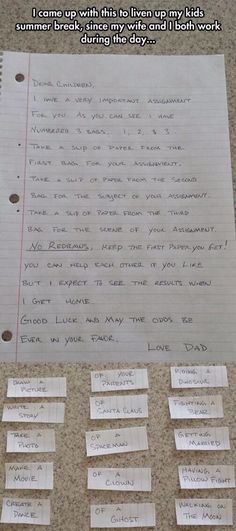 I came up with this to liven up my kids
summer break, since my wife and I both work
during the day...
DEAR CHILDREN,
I HAVE A VERY IMPORTANT ASSIGNMENT
FOR YOU. AS YOU CAN SEE I HAVE
NUMBERED 3 BAGS. 1, 2, & 3.
• TAKE A SLIP OF PAPER FROM THE
FIRST BAG FOR YOUR ASSIGNMENT.
• TAKE A SLIP OF PAPER FROM THE SECOND
BAG FOR THE SUBJECT OF YOUR ASSIGNMENT.
• TAKE A SLIP OF PAPER FROM THE THIRD
BAG FOR THE SCENE OF YOUR ASSIGNMENT.
NO REDRAWS, KEEP THE FIRST PAPER YOU GET!
YOU CAN HELP EACH OTHER IF YOU LIKE
BUT I EXPECT TO SEE THE RESULTS WHEN
I GET HOME.
GOOD LUCK AND MAY THE ODDS BE
EVER IN YOUR FAVOR.
LOVE DAD.
DRAW A
PICTURE
OF YOUR
PARENTS
RIDING A
DINOSAUR
WRITE A
STORY
OF
SANTA CLAUS
FIGHTING A
BEAR
TAKE A
PHOTO
OF A
SPACEMAN
GETTING
MARRIED
MAKE A
MOVIE
OF A
CLOWN
HAVING A
PILLOW FIGHT
CREATE A
DANCE
OF A
GHOST
WALKING ON
THE MOON